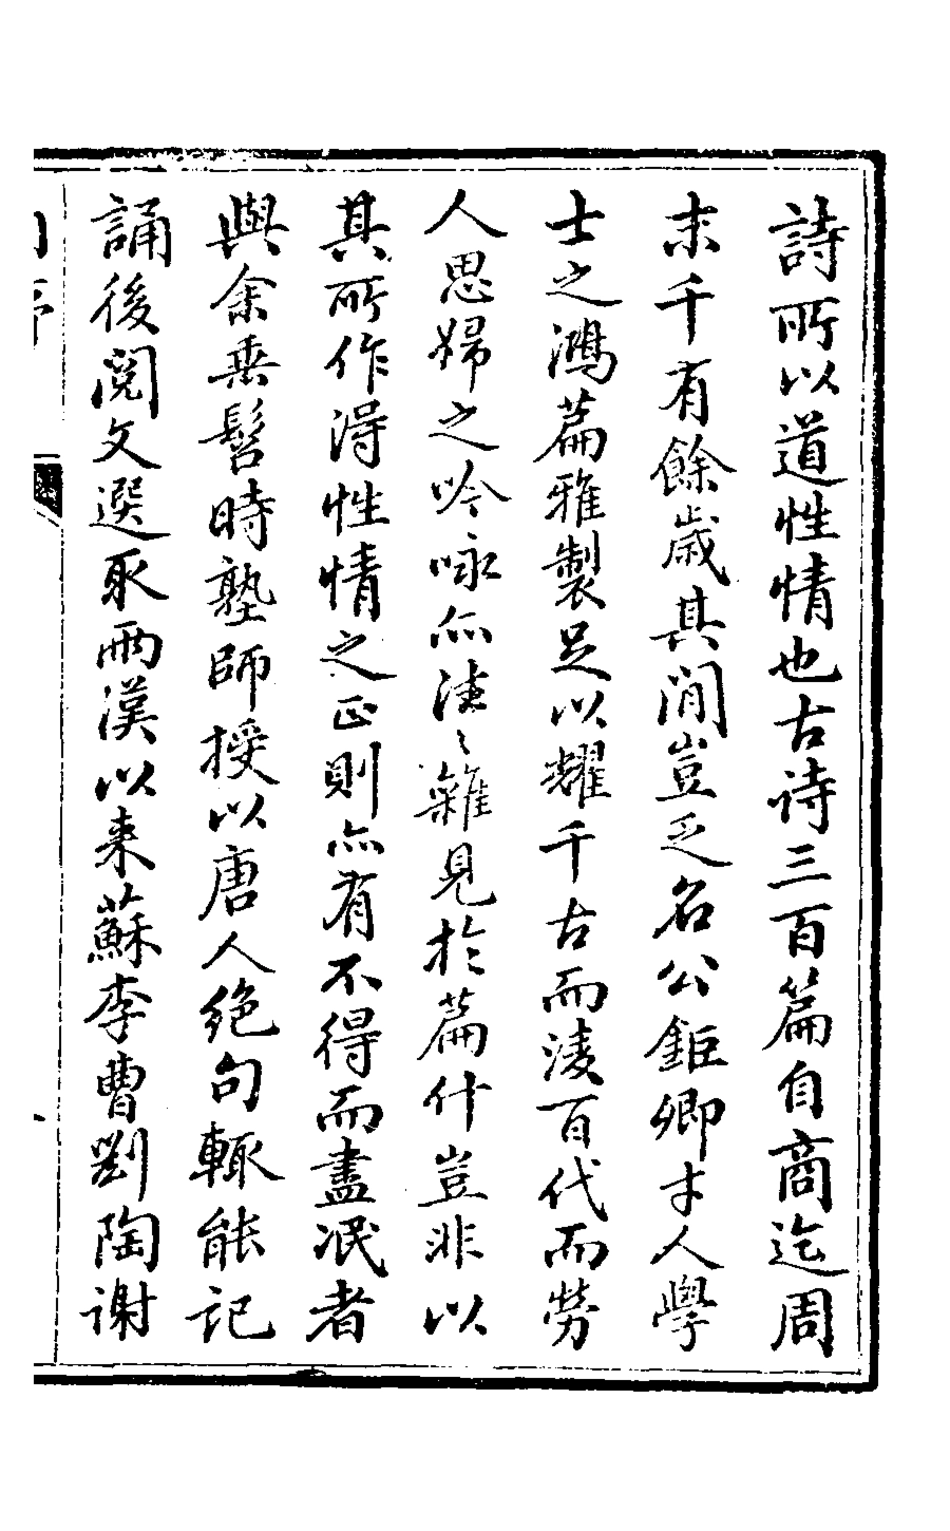 詩所以道性情也古詩三百篇自商迄周
末千有餘歲其間豈乏名公鉅卿才人學
士之鴻篇雅製足以耀千古而淩百代而勞
人思婦之吟咏亦徃〻雜見於篇什豈非以
其所作淂性情之正則亦有不得而盡泯者
與余垂髫時塾師授以唐人絕句輒能記
誦後閱文選取兩漢以来蘇李曹劉陶谢